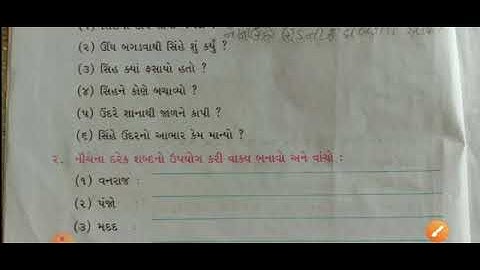 (૨) ઊંઘ બગડવાથી સિંહે શું કર્યું ?
(૩) સિંહ ક્યાં ફસાયો હતો ?
(૪) સિંહને કોણે બચાવ્યો ?
(૫) ઉંદરે શાનાથી જાળને કાપી ?
(૬) સિંહે ઉંદરનો આભાર કેમ માન્યો ?
૨. નીચેના દરેક શબ્દનો ઉપયોગ કરી વાક્ય બનાવો અને વાંચો :
(૧) વનરાજ :
(૨) પંજો :
(૩) મદદ :